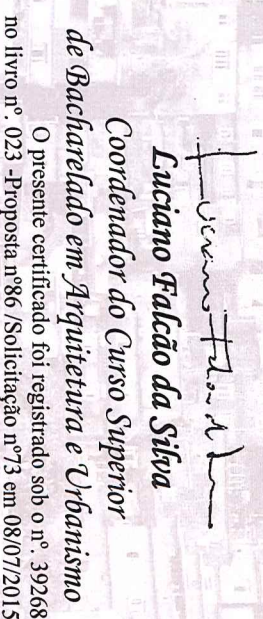 Luciano Falcão da Silva
Coordenador do Curso Superior
de Bacharelado em Arquitetura e Urbanismo
O presente certificado foi registrado sob o nº. 39268
no livro nº. 023 -Proposta nº86 /Solicitação nº73 em 08/07/2015